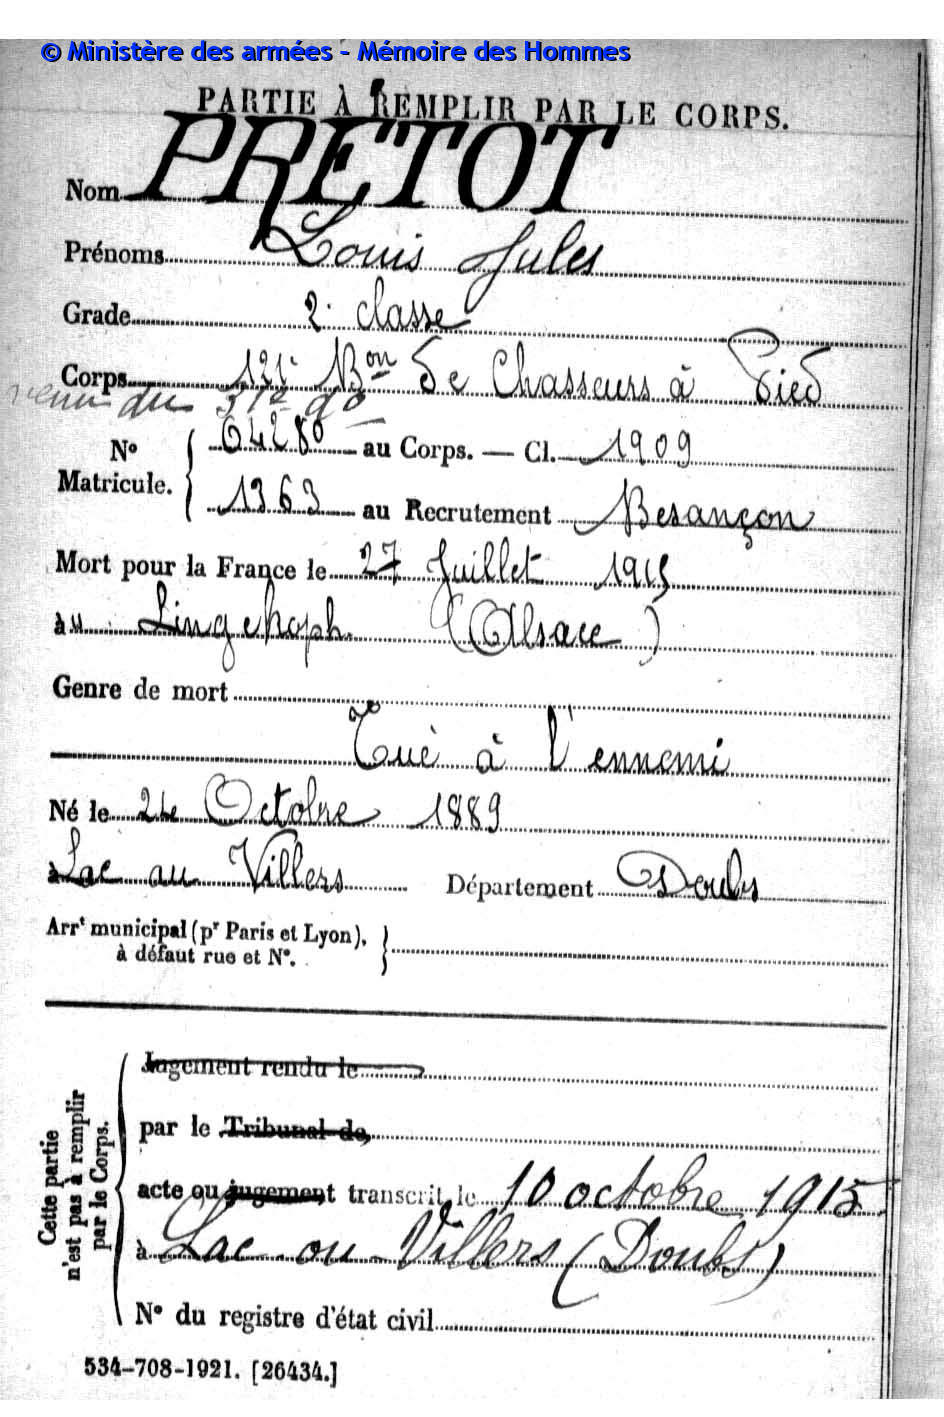 © Ministère des armées - Mémoire des Hommes
PARTIE À REMPLIR PAR LE CORPS.
Nom PRETOT
Prénoms Louis Jules
Grade 2e classe
Corps 121e Bon de Chasseurs à Pied
venu du 31e do
No Matricule. 04280 au Corps. — Cl. 1909
1363 au Recrutement Besançon
Mort pour la France le 27 Juillet 1915
au Lingekoph (Alsace)
Genre de mort
Tué à l'ennemi
Né le 24 Octobre 1889
à Lac au Villers Département Doubs
Arrt municipal (pr Paris et Lyon),
à défaut rue et No.
Cette partie n'est pas à remplir par le Corps.
Jugement rendu le
par le Tribunal de
acte ou jugement transcrit le 10 octobre 1915
à Lac ou Villers (Doubs)
No du registre d'état civil
534-708-1921. [26434.]